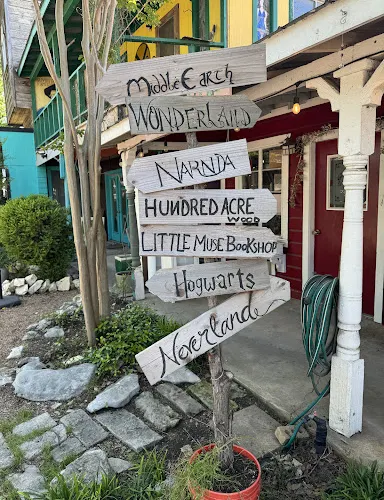 Middle Earth
WONDERLAND
NARNIA
HUNDRED ACRE
WOOD
LITTLE MUSE BOOKSHOP
HOGWARTS
Neverland